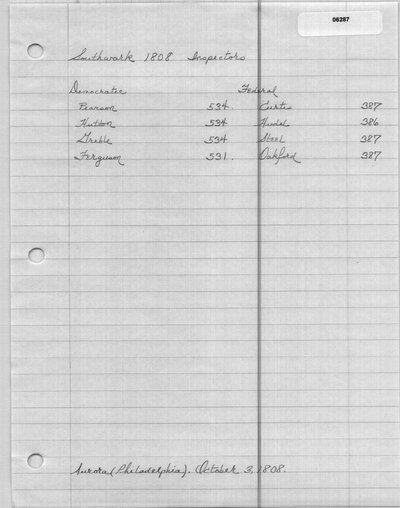 06287
Southwark 1808 Inspectors
Democratic Federal
Pearson 534. Curtis 387
Hutton 534 Hudel 386
Greble 534 Steel 387
Ferguson 531. Oakford 387
Aurora (Philadelphia). October 3, 1808.